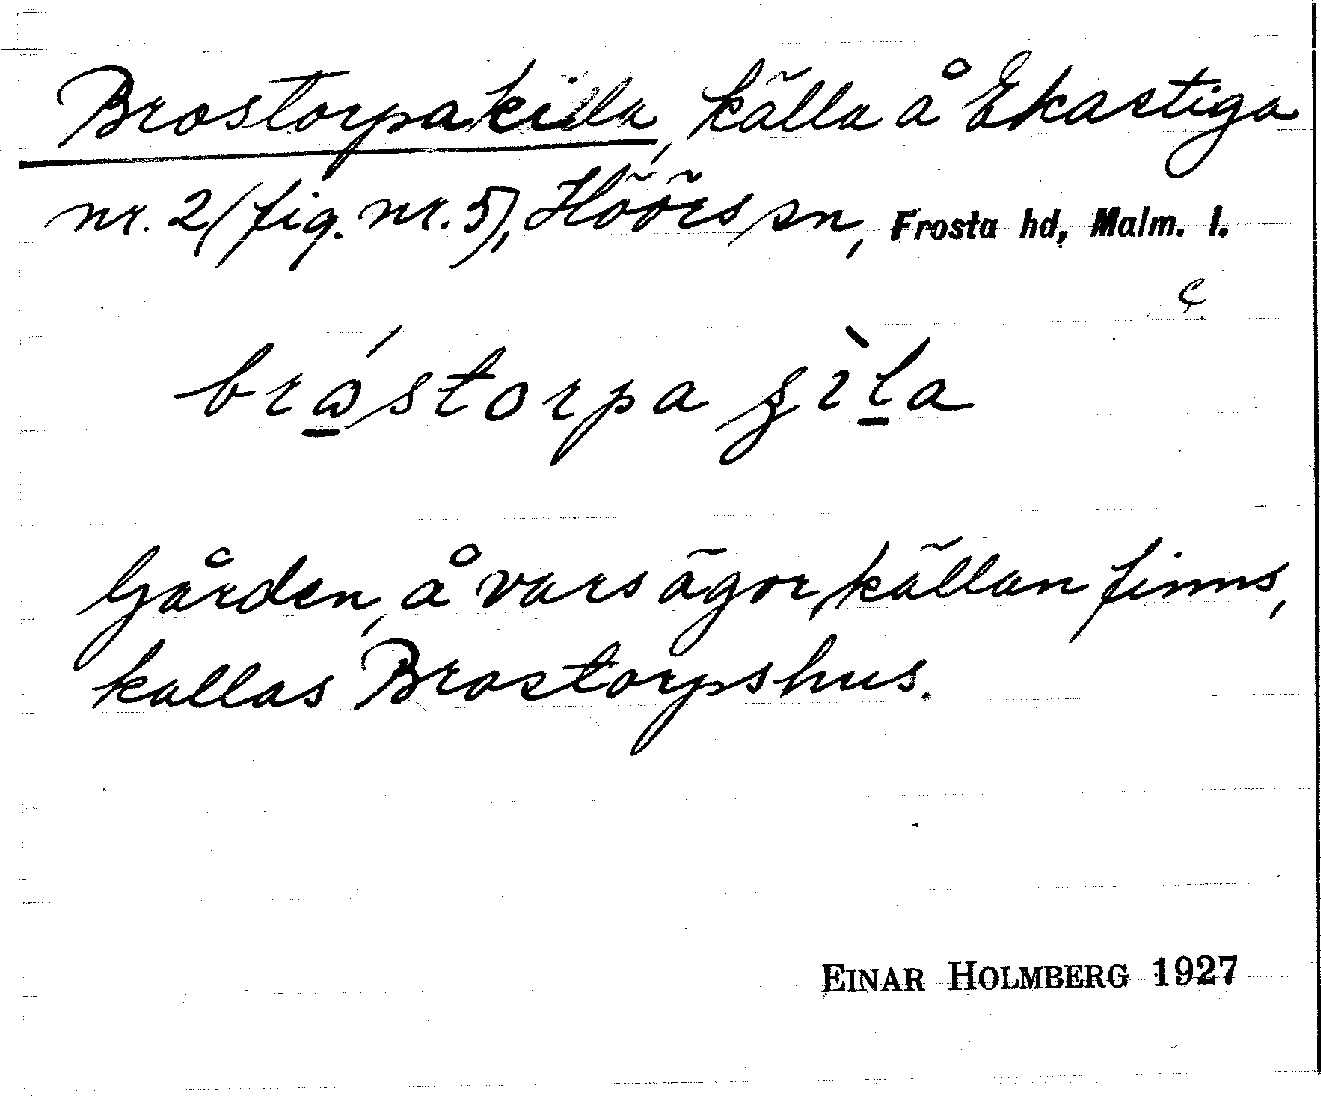 Brostorpakilla, källa å Ekastiga
nr. 2 (fig. nr. 5), Höörs sn, Frosta hd, Malm. l.
c
Gården, å vars ägor källan finns,
kallas Brostorpshus.
EINAR HOLMBERG 1927